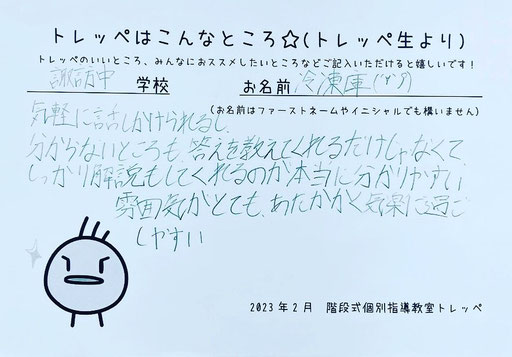 トレッペはこんなところ☆(トレッペ生より)
トレッペのいいところ、みんなにおススメしたいところなどご記入いただけると嬉しいです!
諏訪中 学校 お名前 冷凍庫
(お名前はファーストネームやイニシャルでも構いません)
気軽に話しかけられるし、
分からないところも、答えを教えてくれるだけじゃなくて
しっかり解説もしてくれるのが本当に分かりやすい
雰囲気がとても、あたたかく気楽に過ご
しやすい
2023年2月 階段式個別指導教室トレッペ